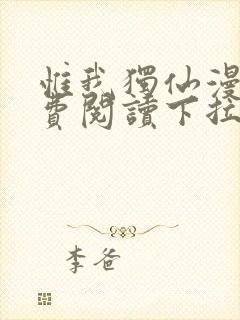 惟我獨仙漫
費閱讀下拉
李爸